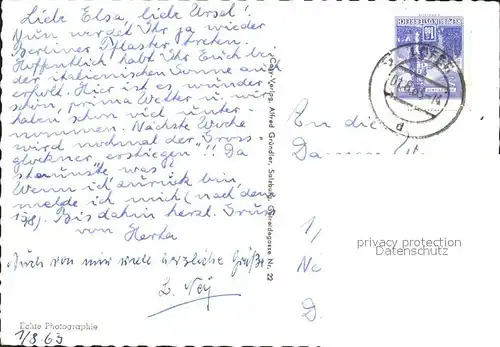 Liebe Elsa, liebe Ursel!
Nun werdet Ihr ja wieder
Berliner Pflaster treten.
Hoffentlich habt Ihr Euch bei
der italienischen Sonne gut
erholt. Hier ist es wunder-
schön, prima Wetter u. wir
haben schon viel unter-
nommen. Nächste Woche
wird nochmal der Gross-
glockner "erstiegen"!! Da
staunste, was?
Wenn ich zurück bin,
melde ich mich (nach dem
19/8). Bis dahin herzl. Gruss
von Herta
Auch von mir viele herzliche Grüße
L. Ney
Echte Photographie
1/8.63
Cosy-Verlag, Alfred Gründler, Salzburg, Getreidegasse Nr. 22
REPUBLIK ÖSTERREICH
An die
1/
Ne
D.
privacy protection
Datenschutz